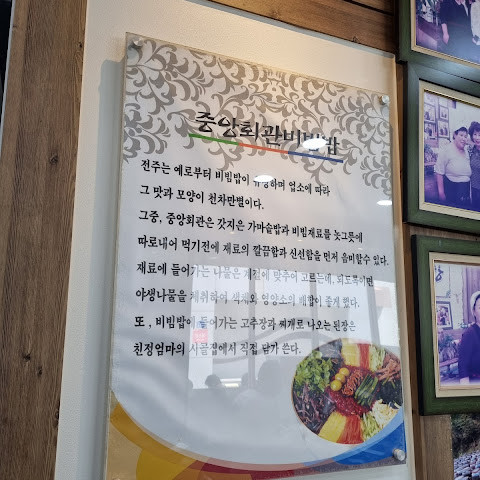 중앙회관비빔밥
전주는 예로부터 비빔밥이 유명하며 업소에 따라
그 맛과 모양이 천차만별이다.
그중, 중앙회관은 갓지은 가마솥밥과 비빔재료를 놋그릇에
따로내어 먹기전에 재료의 깔끔함과 신선함을 먼저 음미할수 있다.
재료에 들어가는 나물은 계절에 맞추어 고르는데, 되도록이면
야생나물을 채취하여 색채와 영양소의 배합이 좋게 했다.
또 , 비빔밥에 들어가는 고추장과 찌개로 나오는 된장은
친정엄마의 시골집에서 직접 담가 쓴다.